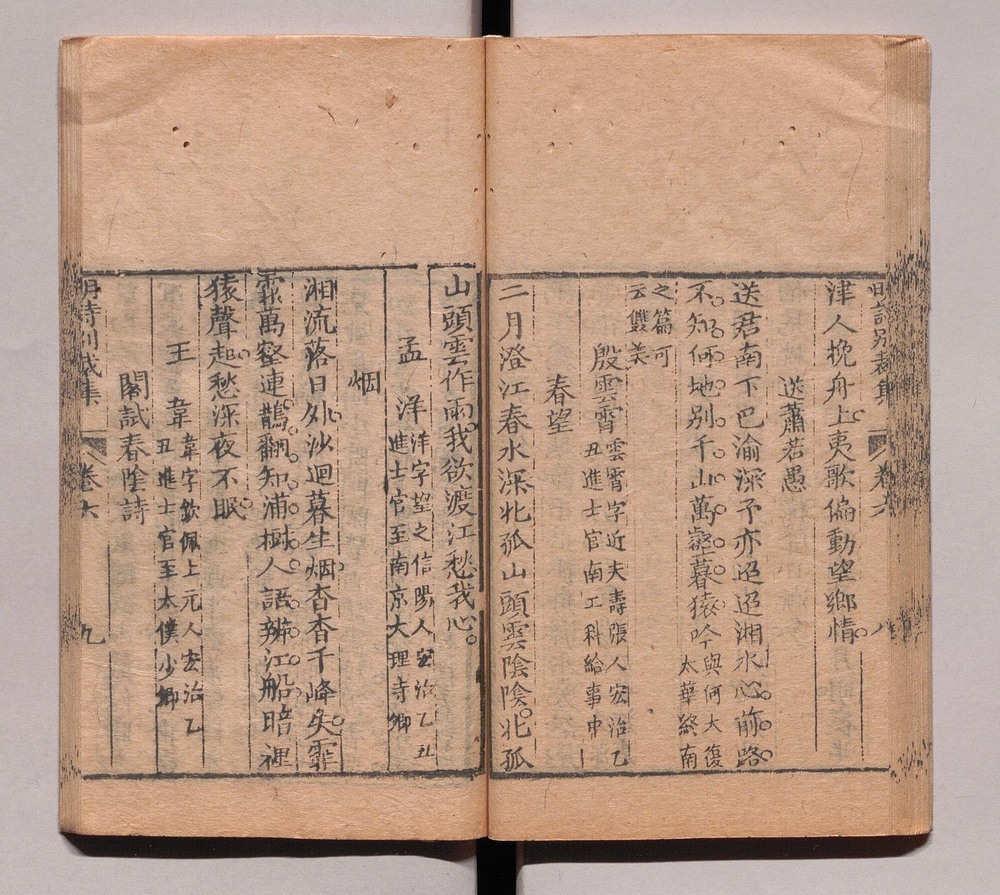 明詩别裁集 卷六 八
津人挽舟上夷歌偏動望鄉情
送蕭若愚
送君南下巴渝深予亦迢迢湘水心前路
不知何地别千山萬壑暮猿吟 與何大復
太華終南
之篇可
云雙美
殷雲霄 雲霄字近夫壽張人宏治乙
丑進士官南工科給事中
春望
二月澄江春水深北孤山頭雲陰陰。北孤
山頭雲作雨。我欲渡江愁我心。
孟洋 洋字望之信陽人宏治乙丑
進士官至南京大理寺卿
烟
湘流落日外沙迴暮生烟杳杳千峰失霏
霏萬壑連鵲翻知浦樹人語辨江船暗裡
猿聲起愁深夜不眠
王韋 韋字欽佩上元人宏治乙
丑進士官至太僕少卿
閣試春陰詩
明詩别裁集 卷六 九